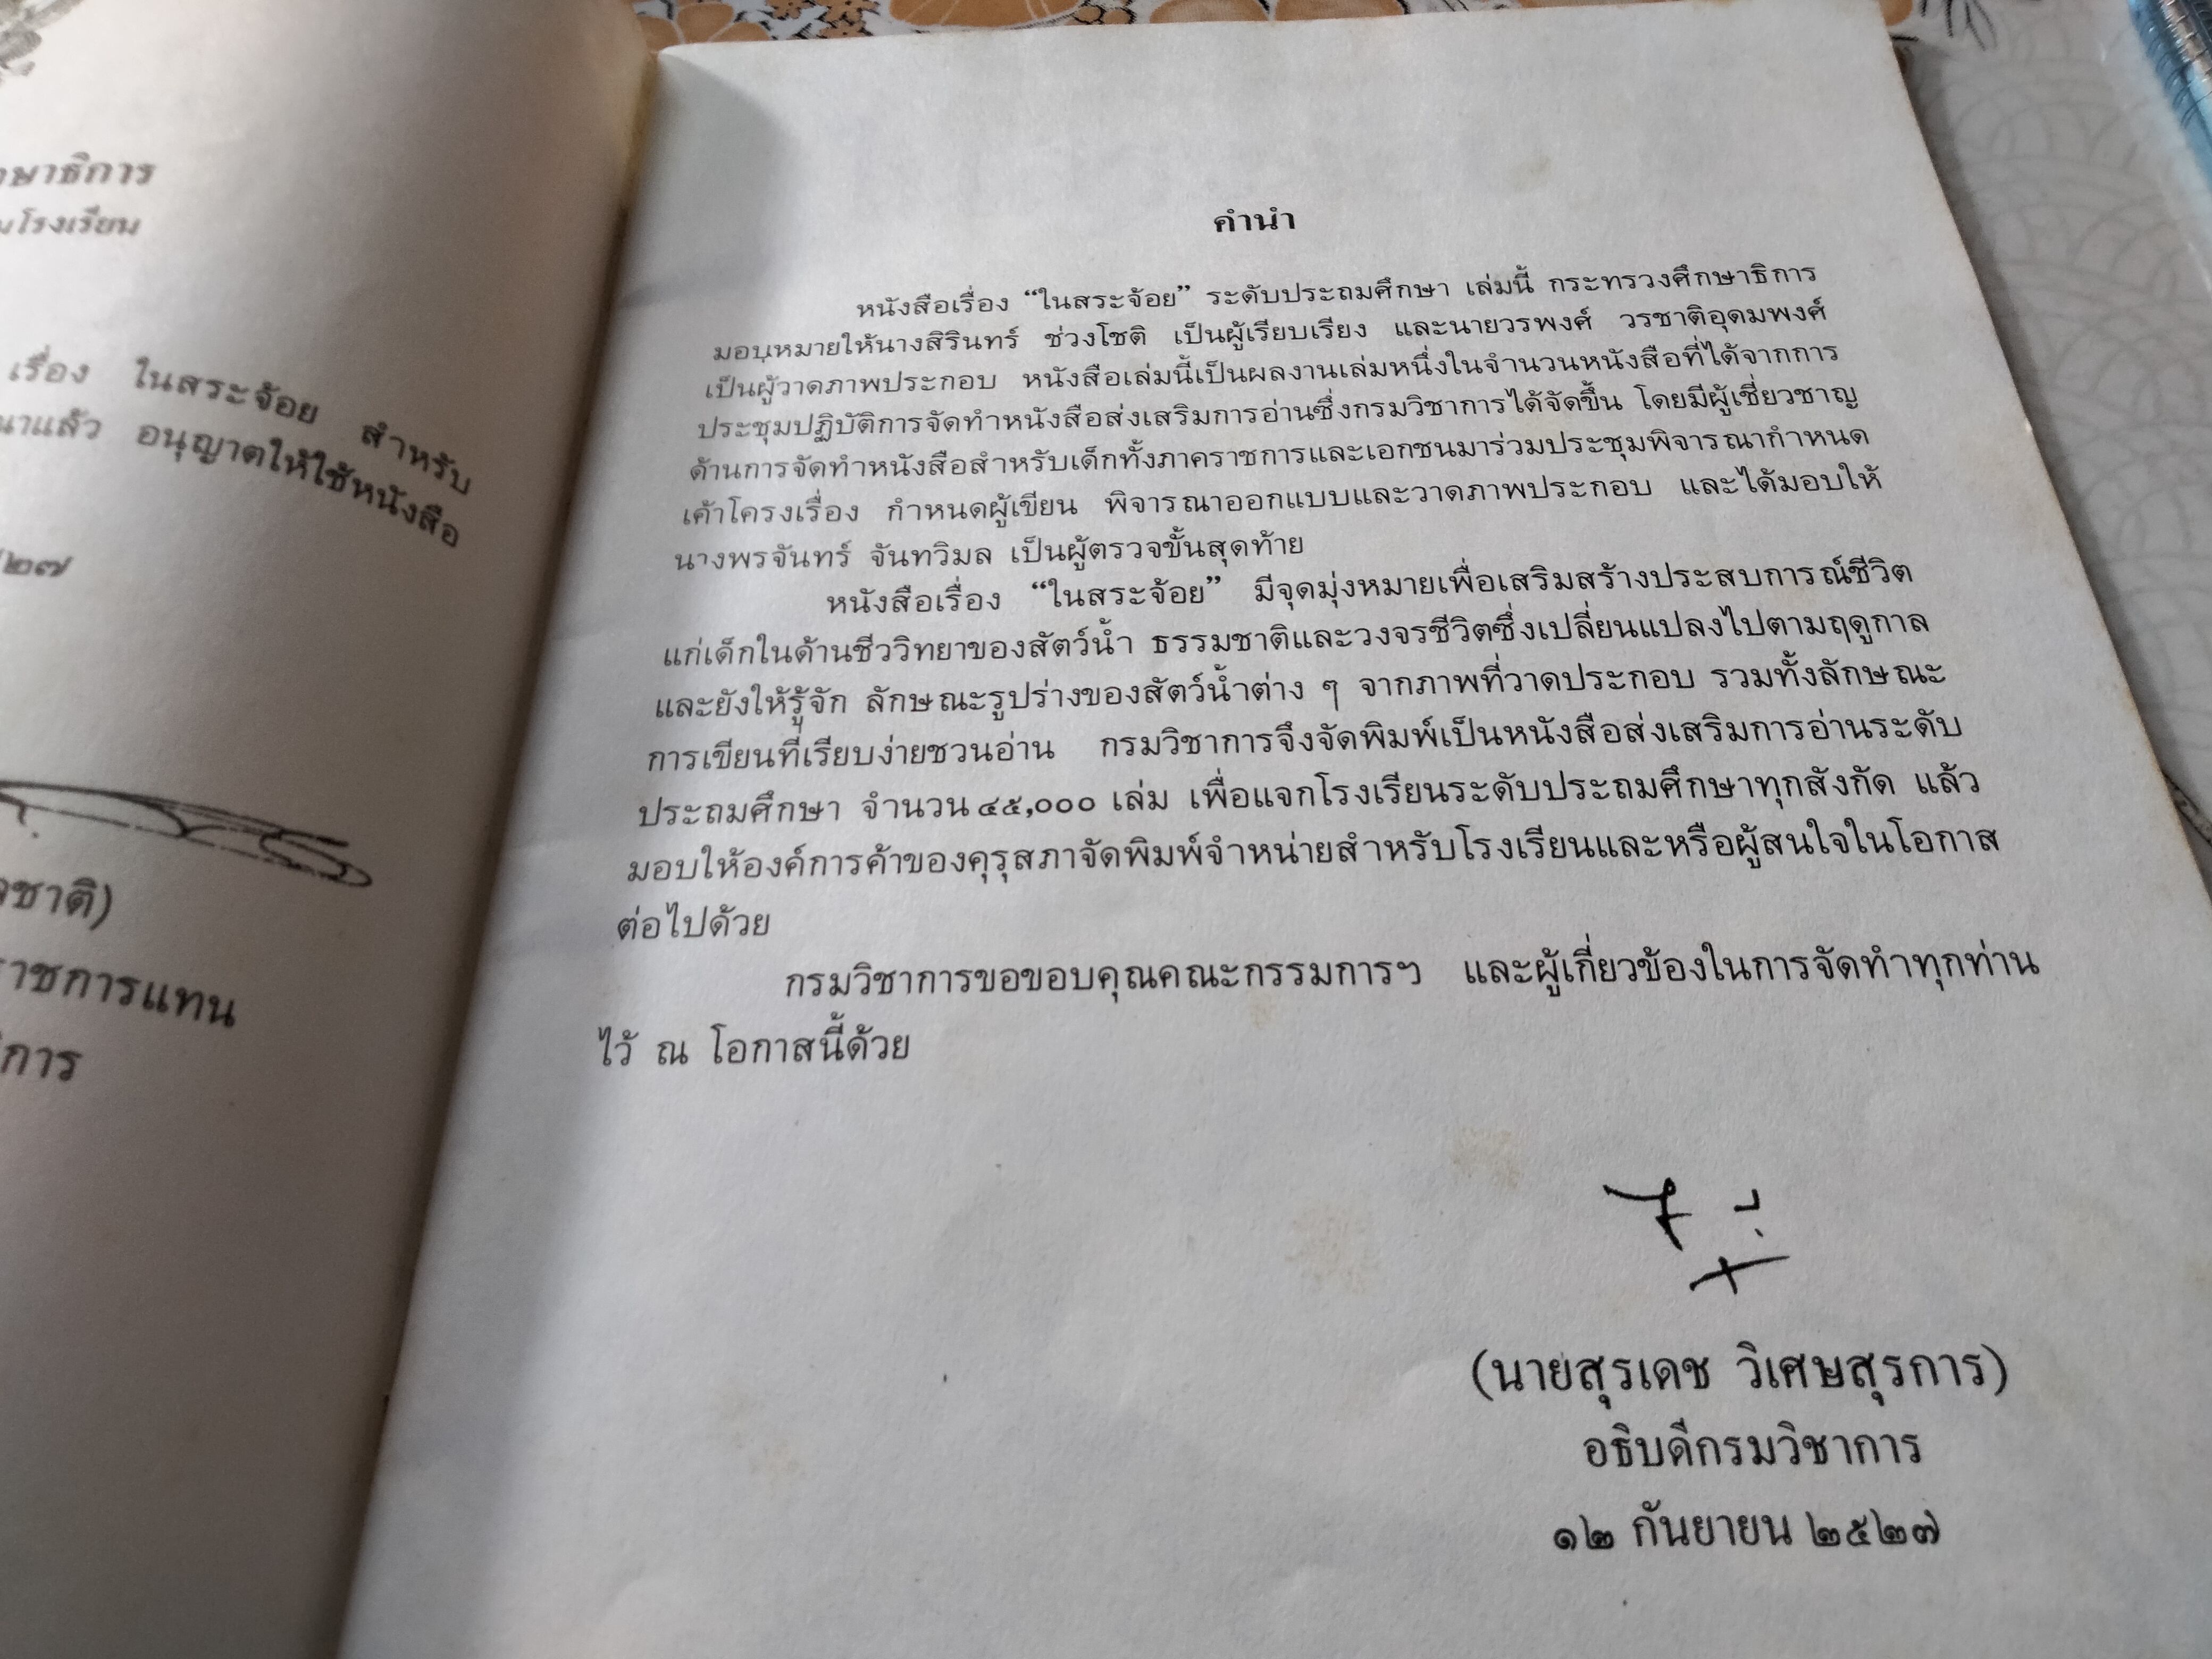 ษาธิการ
โรงเรียน
เรื่อง ในสระจ้อย สำหรับ
นาแล้ว อนุญาตให้ใช้หนังสือ
๒๗
ชาติ)
ราชการแทน
การ
คำนำ
หนังสือเรื่อง “ในสระจ้อย” ระดับประถมศึกษา เล่มนี้ กระทรวงศึกษาธิการ
มอบหมายให้นางสิรินทร์ ช่วงโชติ เป็นผู้เรียบเรียง และนายวรพงศ์ วรชาติอุดมพงศ์
เป็นผู้วาดภาพประกอบ หนังสือเล่มนี้เป็นผลงานเล่มหนึ่งในจำนวนหนังสือที่ได้จากการ
ประชุมปฏิบัติการจัดทำหนังสือส่งเสริมการอ่านซึ่งกรมวิชาการได้จัดขึ้น โดยมีผู้เชี่ยวชาญ
ด้านการจัดทำหนังสือสำหรับเด็กทั้งภาคราชการและเอกชนมาร่วมประชุมพิจารณากำหนด
เค้าโครงเรื่อง กำหนดผู้เขียน พิจารณาออกแบบและวาดภาพประกอบ และได้มอบให้
นางพรจันทร์ จันทวิมล เป็นผู้ตรวจขั้นสุดท้าย
หนังสือเรื่อง “ในสระจ้อย” มีจุดมุ่งหมายเพื่อเสริมสร้างประสบการณ์ชีวิต
แก่เด็กในด้านชีววิทยาของสัตว์น้ำ ธรรมชาติและวงจรชีวิตซึ่งเปลี่ยนแปลงไปตามฤดูกาล
และยังให้รู้จัก ลักษณะรูปร่างของสัตว์น้ำต่าง ๆ จากภาพที่วาดประกอบ รวมทั้งลักษณะ
การเขียนที่เรียบง่ายชวนอ่าน กรมวิชาการจึงจัดพิมพ์เป็นหนังสือส่งเสริมการอ่านระดับ
ประถมศึกษา จำนวน ๔๕,๐๐๐ เล่ม เพื่อแจกโรงเรียนระดับประถมศึกษาทุกสังกัด แล้ว
มอบให้องค์การค้าของคุรุสภาจัดพิมพ์จำหน่ายสำหรับโรงเรียนและหรือผู้สนใจในโอกาส
ต่อไปด้วย
กรมวิชาการขอขอบคุณคณะกรรมการฯ และผู้เกี่ยวข้องในการจัดทำทุกท่าน
ไว้ ณ โอกาสนี้ด้วย
(นายสุรเดช วิเศษสุรการ)
อธิบดีกรมวิชาการ
๑๒ กันยายน ๒๕๒๗